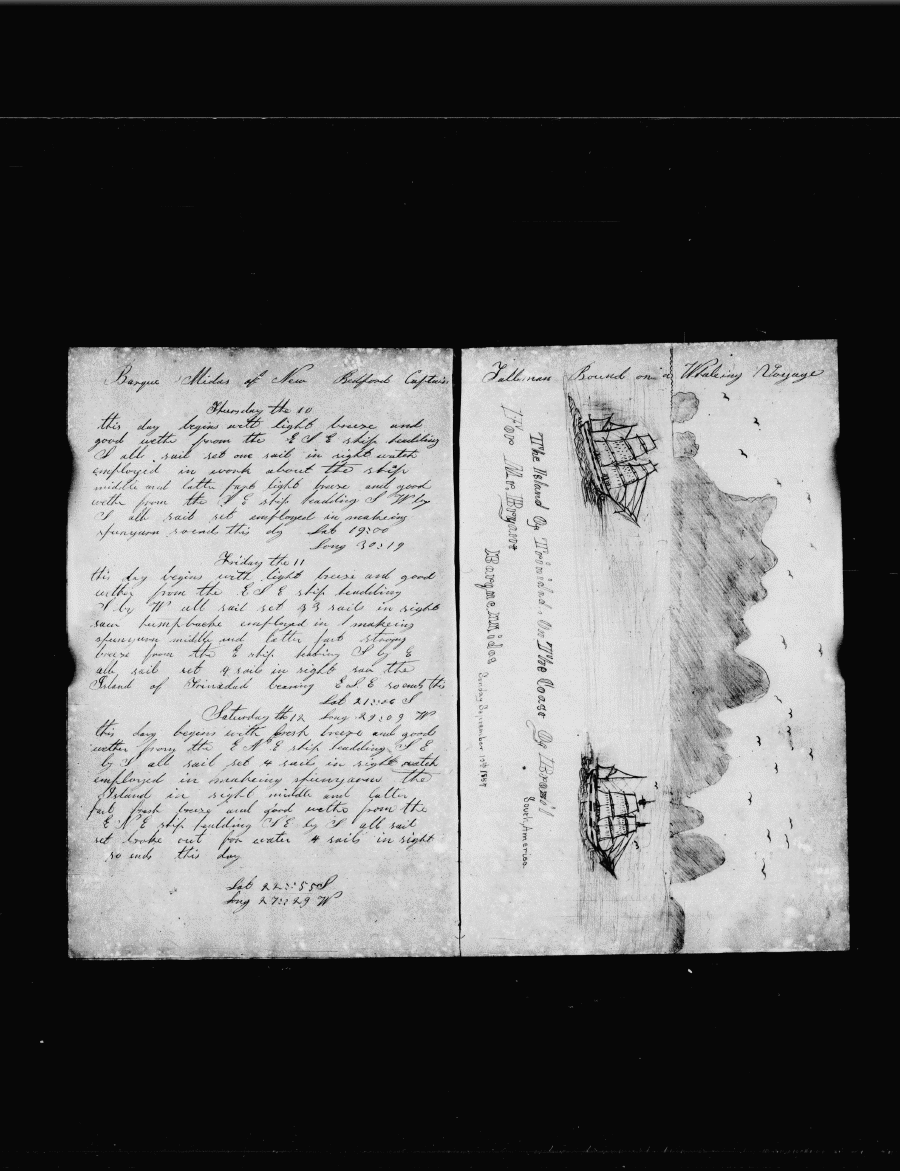 Barque Midas of New Bedford Captain
Thursday the 10
this day begins with light breeze and
good wether from the E S E ship headding
S all sail set one sail in sight watch
employed in work about the ship
middle and latter part light breeze and good
wether from the S E ship headding S W by
S all sail set employed in makeing
spunyuon so ends this dy Lat 19:00
Long 30:19
Friday the 11
this day begins with light breeze and good
wether from the E S E ship headding
S by W all sail set 3 sails in sight
saw humpbacks employed in makeing
spunyuon middle and latter part strong
breeze from the E ship heading S by E
all sails set 4 sails in sight saw the
Island of Trinadad bearing E S E so ends this
Lat 21:06 S
Saturday the 12 Long 29:09 W
this day begins with fresh breeze and good
wether from the E N E ship headding S E
by S all sail set 4 sails in sight watch
employed in makeing spunyaron the
Island in sight middle and latter
part fresh breeze and good wethe from the
E N E ship headding S E by S all sail
set broke out for water 4 sails in sight
so ends this day
Lat 22::55 S
Long 27::29 W
Talleman Bound on a Whaleing Voyage
The Island Of Trinidad. On The Coast Of Brazil
South America.
For Mr. Bryant
Barque Midas
Sunday September 10th